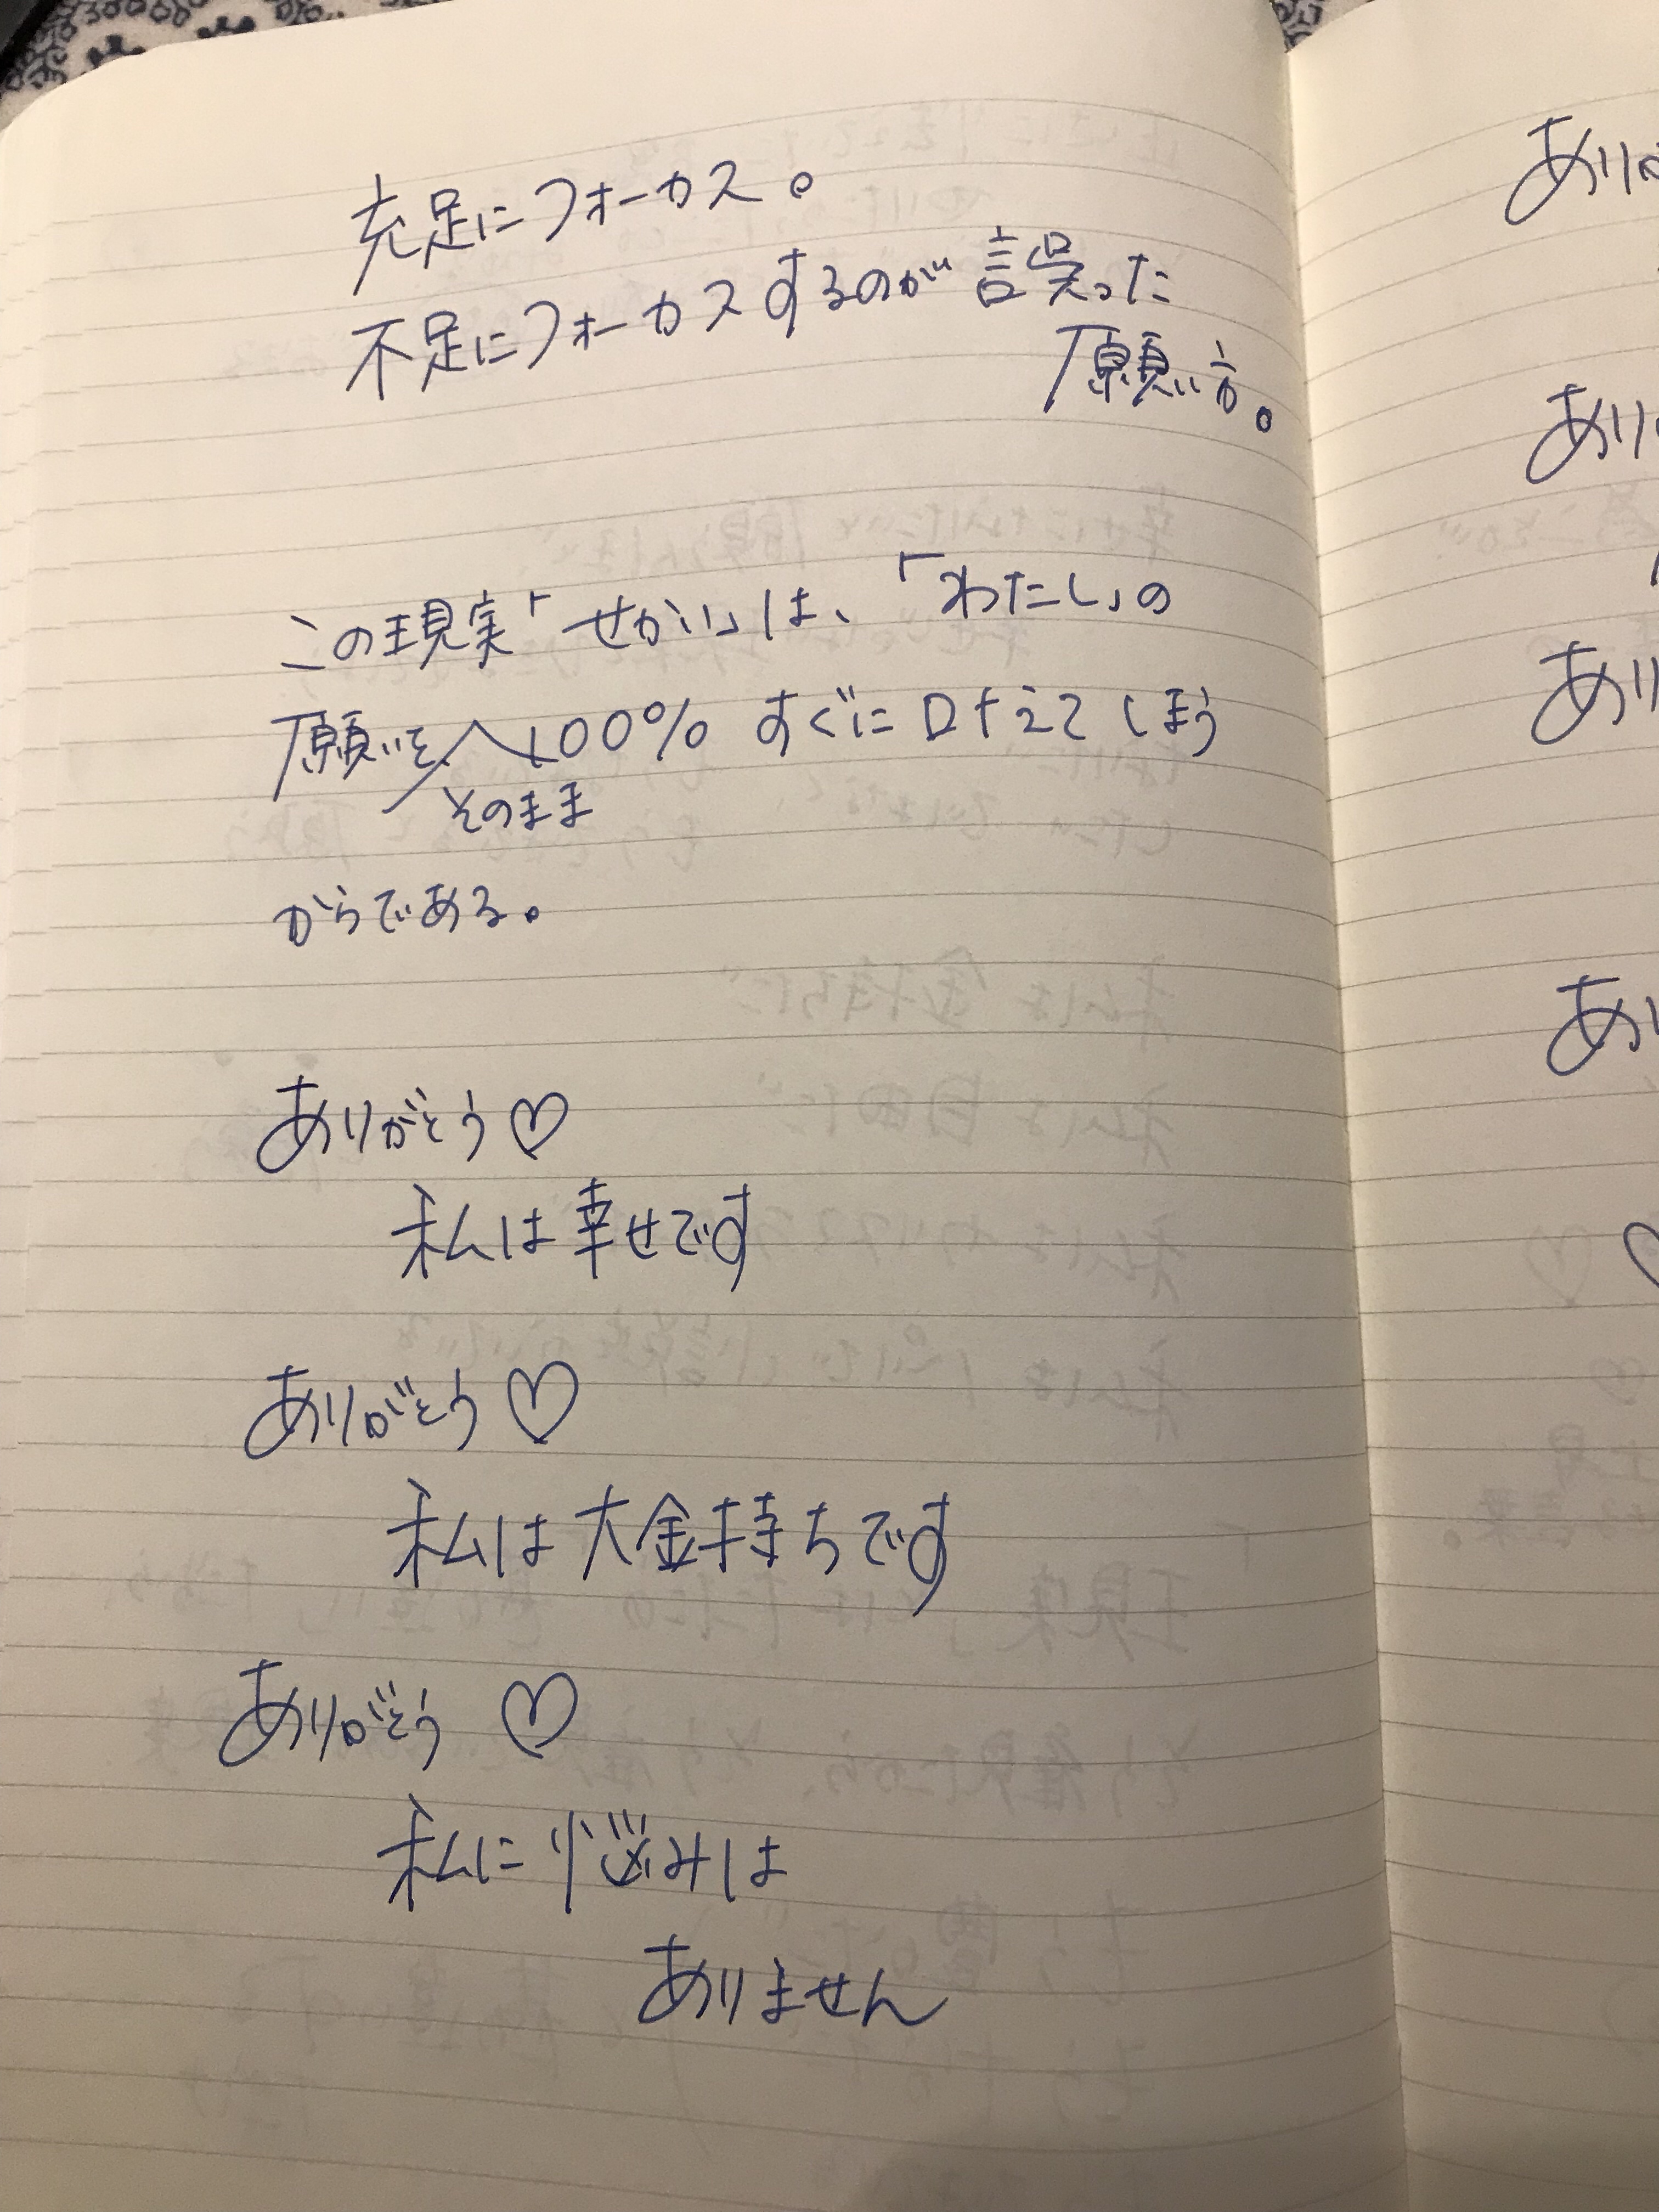 充足にフォーカス。
不足にフォーカスするのが誤った
願い方。
この現実「せかい」は、「わたし」の
願いを100%すぐに叶えてしまう
そのまま
からである。
ありがとう♡
私は幸せです
ありがとう♡
私は大金持ちです
ありがとう♡
私に悩みは
ありません